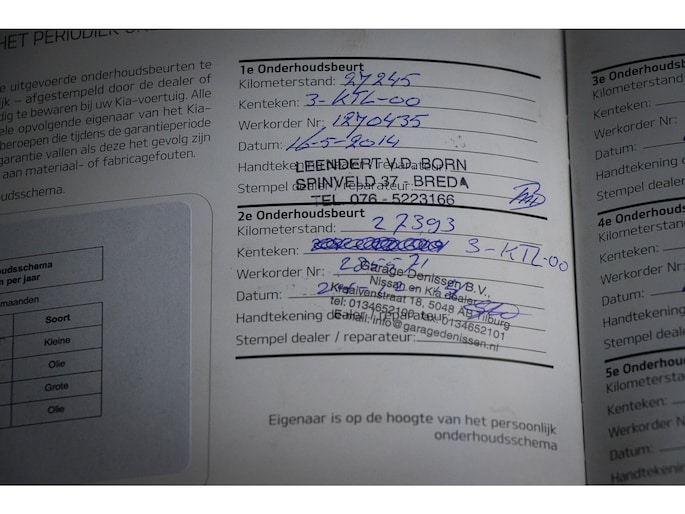 HET PERIODIEK
e uitgevoerde onderhoudsbeurten te
jk – afgestempeld door de dealer of
dig te bewaren bij uw Kia-voertuig. Alle
ele opvolgende eigenaar van het Kia-
beroepen die tijdens de garantieperiode
garantie vallen als deze het gevolg zijn
aan materiaal- of fabricagefouten.
oudsschema.
oudsschema
n per jaar
maanden
Soort
Kleine
Olie
Grote
Olie
1e Onderhoudsbeurt
Kilometerstand: 27245
Kenteken: 3-KTL-00
Werkorder Nr: 1270435
Datum: 16-5-2014
Handtekening dealer / reparateur:
LEENDERT V.D. BORN
Stempel dealer / reparateur:
SPINVELD 37 - BREDA
TEL. 076 - 5223166
2e Onderhoudsbeurt
Kilometerstand: 27393
Kenteken: 3-KTL-00
Werkorder Nr:
Garage Denissen B.V.
Nissan en Kia dealer
Datum:
Kraaivenstraat 18, 5048 AB Tilburg
Handtekening dealer / reparateur:
tel: 0134652101 0134652101
E-mail: info@garagedenissen.nl
Stempel dealer / reparateur:
Eigenaar is op de hoogte van het persoonlijk
onderhoudsschema
3e Onderhoudsb
Kilometerstand:
Kenteken:
Werkorder Nr:
Datum:
Handtekening de
Stempel dealer
4e Onderhouds
Kilometerstand
Kenteken:
Werkorder Nr
Datum:
Handtekening
Stempel deale
5e Onderhou
Kilometersta
Kenteken:
Werkorder N
Datum:
Handtekening